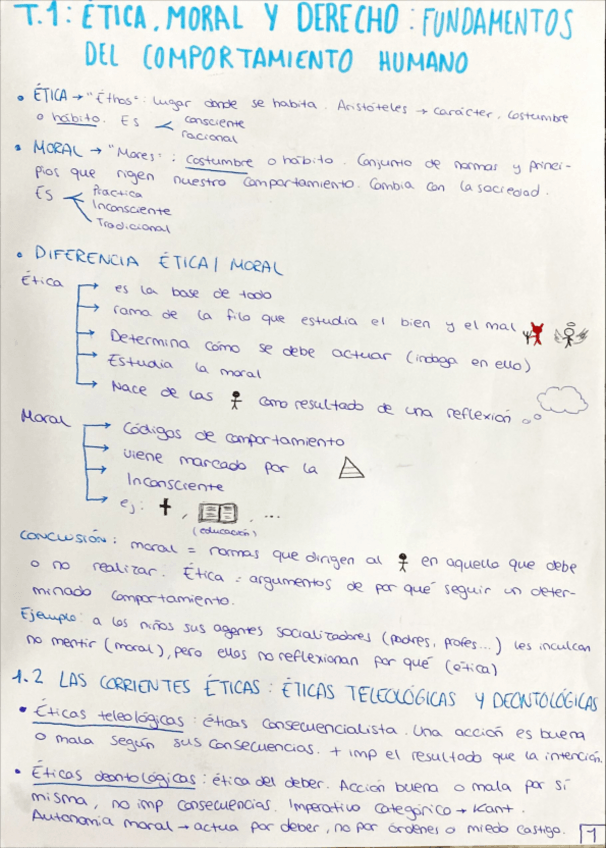 T.1: ÉTICA, MORAL Y DERECHO: FUNDAMENTOS
DEL COMPORTAMIENTO HUMANO
• ÉTICA → "Éthos": lugar donde se habita. Aristóteles → carácter, costumbre
o hábito. Es consciente
racional
• MORAL → "Mores": costumbre o hábito. Conjunto de normas y princi-
pios que rigen nuestro comportamiento. Cambia con la sociedad.
Es Práctica
Inconsciente
Tradicional
• DIFERENCIA ÉTICA / MORAL
Ética → es la base de todo
→ rama de la filo que estudia el bien y el mal
→ Determina cómo se debe actuar (indaga en ello)
→ Estudia la moral
→ Nace de las como resultado de una reflexión
Moral → Códigos de comportamiento
→ viene marcado por la
→ Inconsciente
→ ej: , ...
(educación)
CONCLUSIÓN: moral = normas que dirigen al en aquello que debe
o no realizar. Ética = argumentos de por qué seguir un deter-
minado comportamiento.
Ejemplo: a los niños sus agentes socializadores (padres, profes...) les inculcan
no mentir (moral), pero ellos no reflexionan por qué (ética)
1.2 LAS CORRIENTES ÉTICAS: ÉTICAS TELEOLÓGICAS Y DEONTOLÓGICAS
• Éticas teleológicas: éticas consecuencialista. Una acción es buena
o mala según sus consecuencias. + imp el resultado que la intención.
• Éticas deontológicas: ética del deber. Acción buena o mala por sí
misma, no imp consecuencias. Imperativo categórico → Kant.
Autonomía moral → actua por deber, no por órdenes o miedo castigo.
1